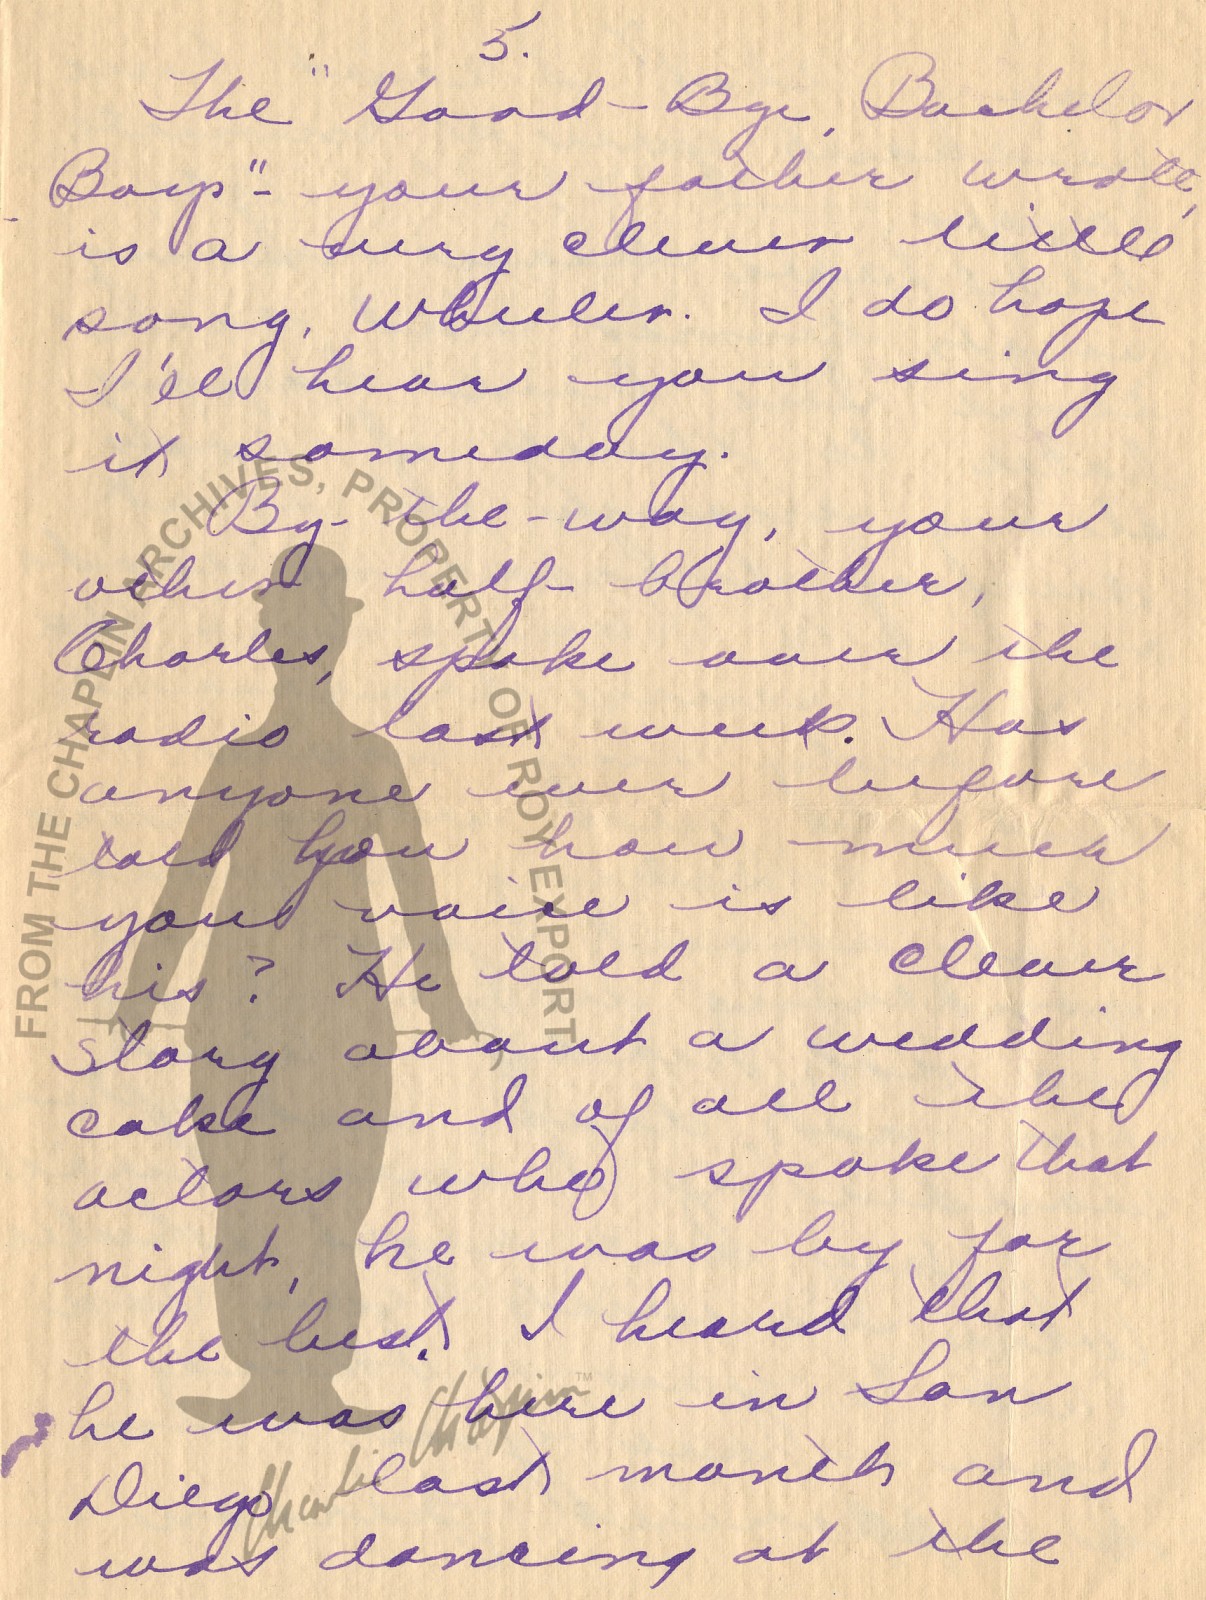 5.
The "Good-Bye, Bachelor
Boys"- your father wrote,
is a very clever little
song, Wheeler. I do hope
I'll hear you sing
it someday.
By-the-way, your
other half-brother,
Charles, spoke over the
radio last week. Has
anyone ever before
told you how much
your voice is like
his? He told a clever
story about a wedding
cake and of all the
actors who spoke that
night, he was by far
the best. I heard that
he was here in San
Diego last month and
was dancing at the
FROM THE CHAPLIN ARCHIVES, PROPERTY OF ROY EXPORT
Charlie Chaplin™